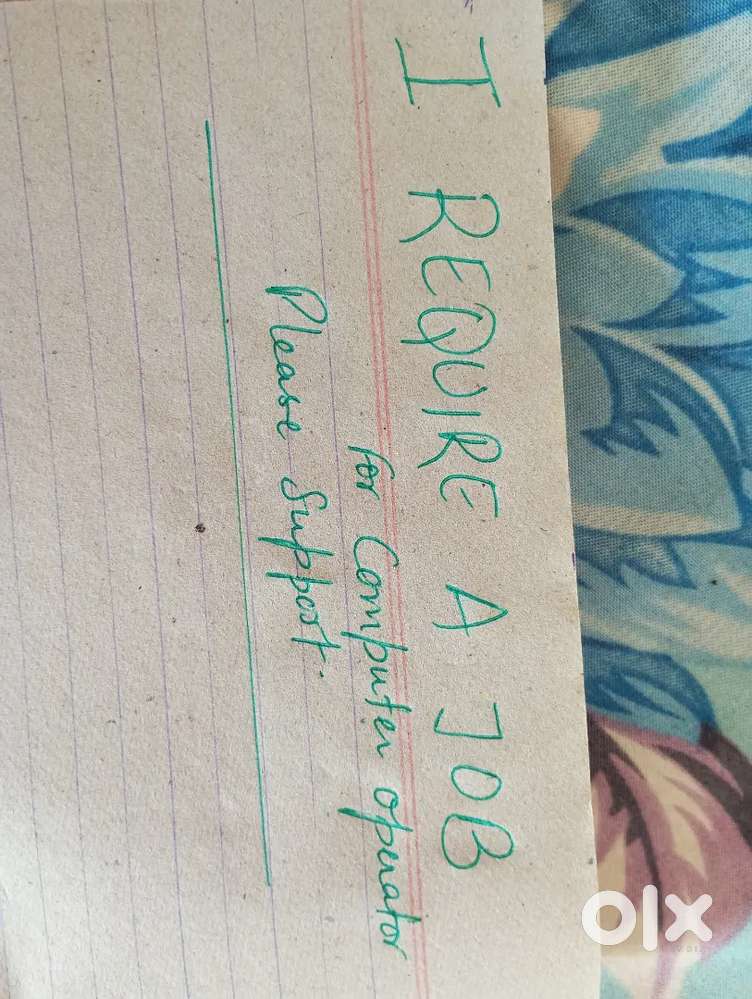 I REQUIRE A JOB
for Computer operator
Please Support.
olx